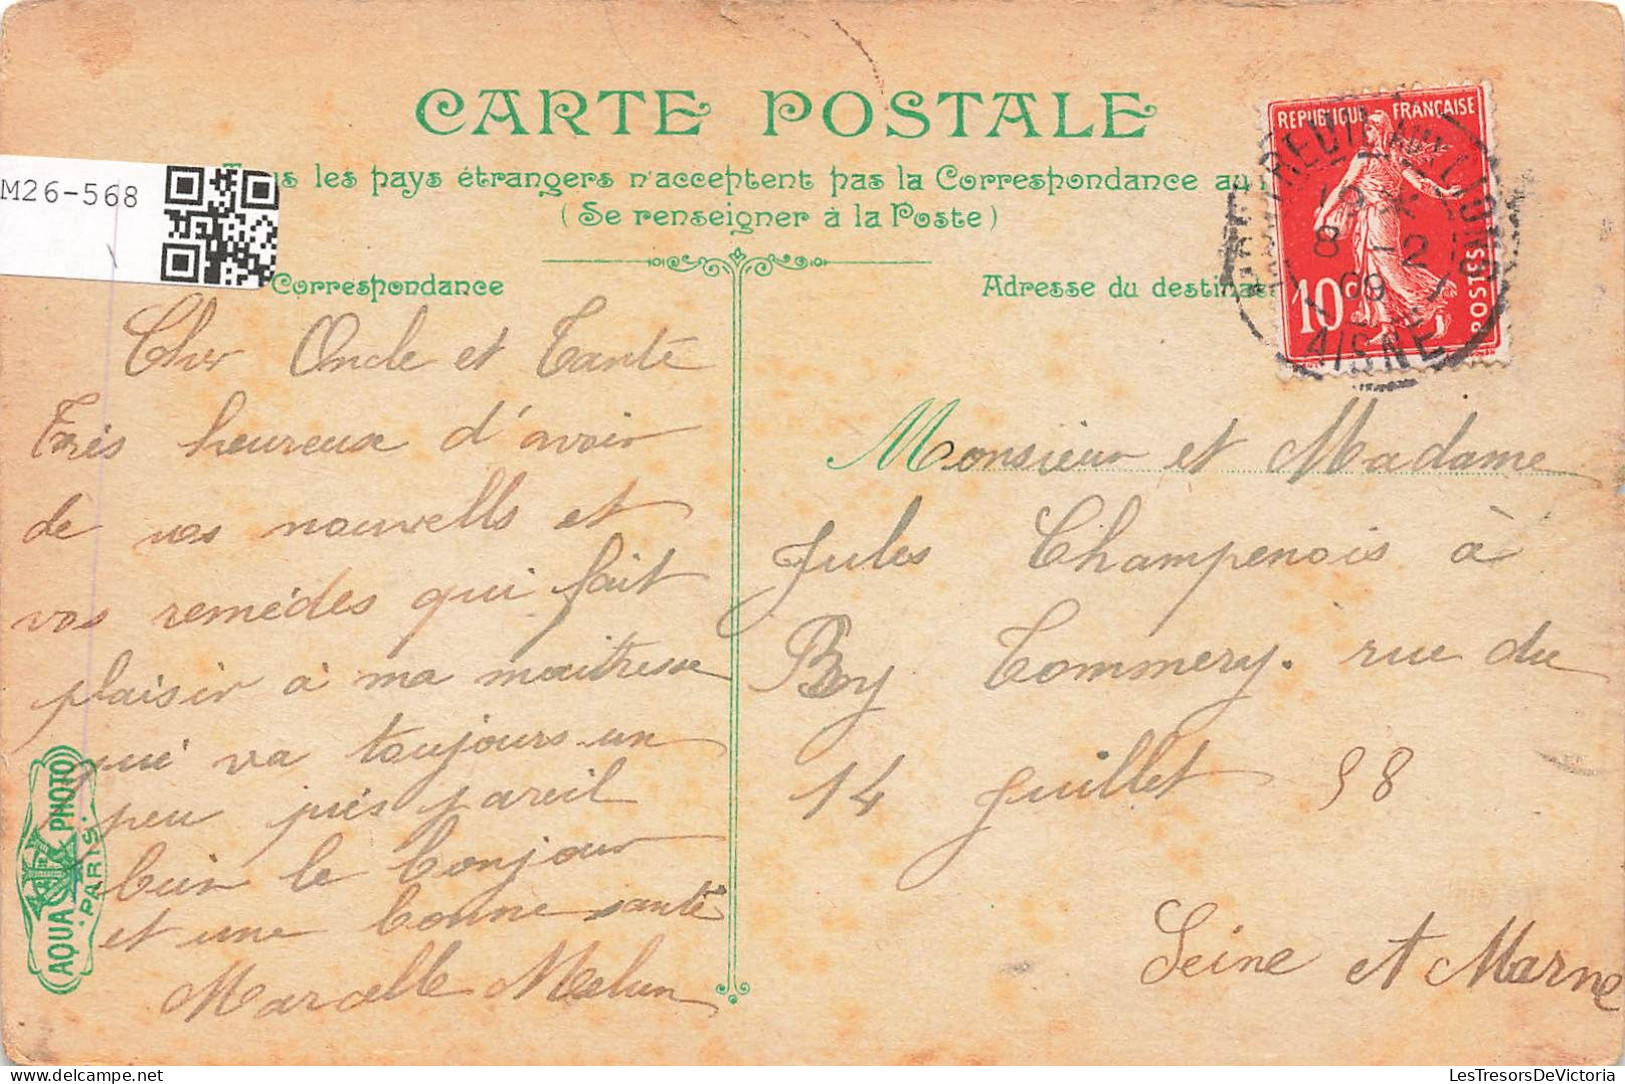 CARTE POSTALE
les pays étrangers n'acceptent pas la Correspondance au
(Se renseigner à la Poste)
M26-568
Correspondance
Cher Oncle et Tante
Très heureux d'avoir
de vos nouvells et
vos remèdes qui fait
plaisir à ma maitresse
qui va toujours un
peu près pareil
bien le bonjour
et une bonne santé
Marcelle Melun
AQUA PHOTO
PARIS
Adresse du
REPUBLIQUE FRANÇAISE
10c
POSTES
19
8 -2
09
AISNE
Monsieur et Madame
Jules Champenois à
By Tommery. rue du
14 Juillet 98
Seine et Marne
LesTresorsDeVictoria